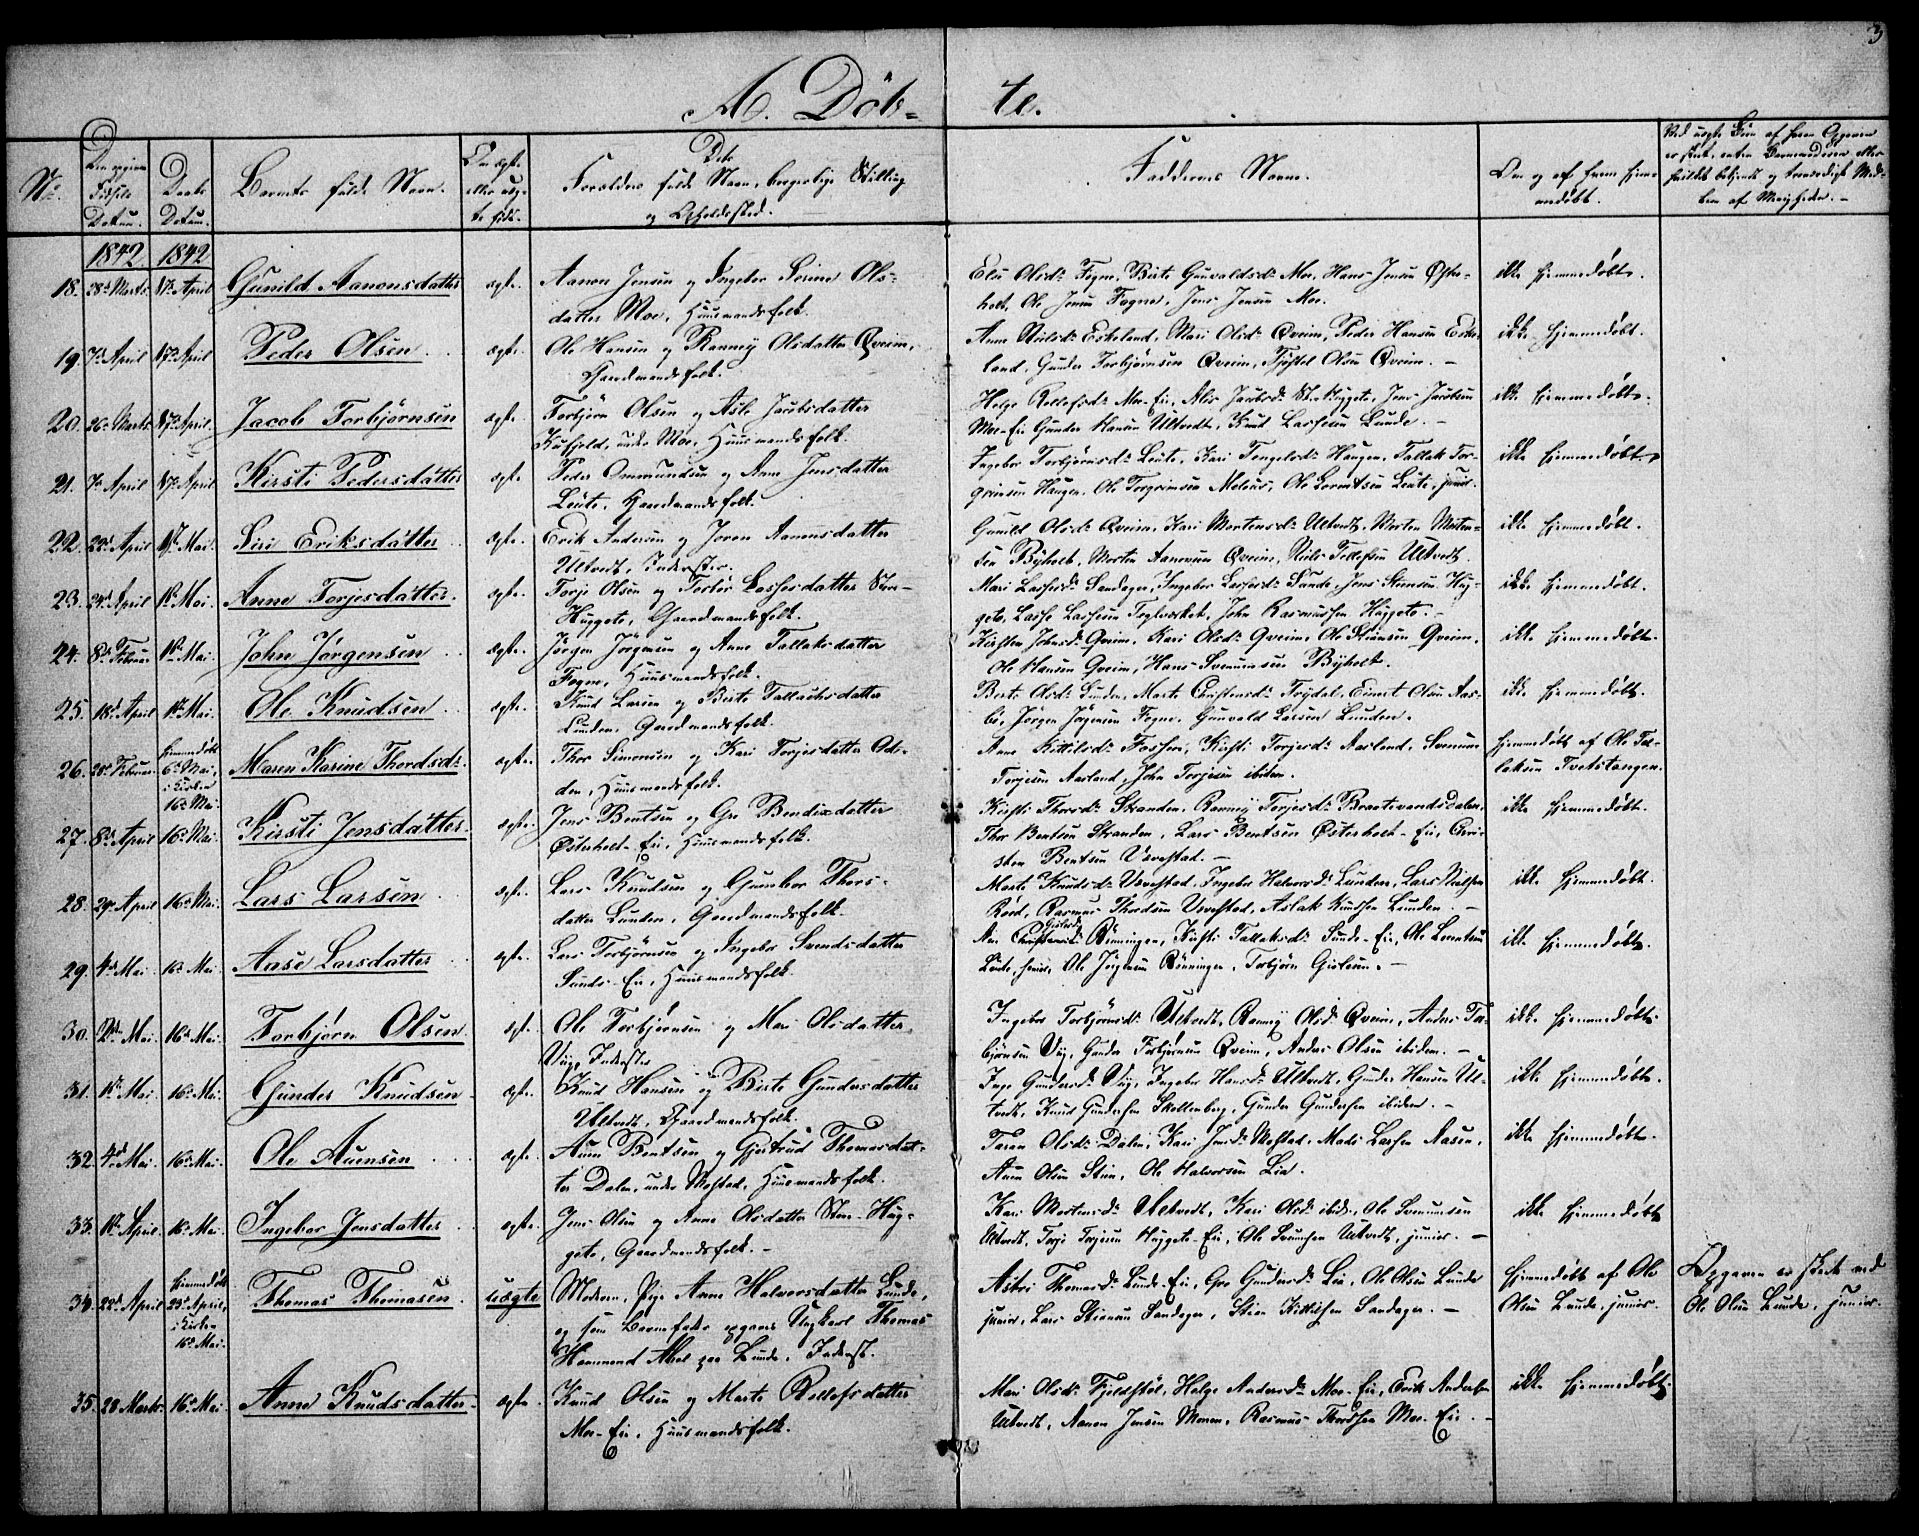 3
A. Döb- te.
No.
Den opgivne Fødsels Datum.
Daabs Datum.
Barnets fulde Navn.
Om ægte eller uægte født.
Forældrenes fulde Navn, borgerlige Stilling og Opholdssted.
Faddernes Navne.
Om og af hvem hjemmedøbt.
1842 1842
18. 28de Marts 17de April Gunild Aanonsdatter ægte. Aanon Jensen og Ingebor Serine Ols-
datter Moe, Huusmandsfolk.
Else Olsdr Fogne, Birte Gunvaldsdr Moe, Hans Jensen Øster-
holt, Ole Jensen Fogne, Jens Jensen Moe.
ikke hjemmedøbt.
19. 7de April 17de April Peder Olsen ægte. Ole Hansen og Ranneÿ Olsdatter Qveim,
Gaardmandsfolk.
Anne Nielsdr Eskeland, Mari Olsdr Qveim, Peder Hansen Eske-
land, Gunder Torbjörnsen Qveim, Kjøstel Olsen Qveim. -
ikke hjemmedøbt.
20. 26de Marts 17de April Jacob Torbjørnsen ægte. Torbjörn Olsen og Asle Jacobsdatter
under Moe, Huusmandsfolk.
Helge Rollefsdr Moe-Eie, Jens Jacobsen
Moe-Eie, Gunder Hansen Ultvedt, Knud Lassesen Lunde. -
ikke hjemmedøbt.
21. 7de April 17de April Kirsti Pedersdatter ægte. Peder Ommundsen og Anne Jensdatter
Leite, Gaardmandsfolk.
Ingebor Torbjörnsdr Leite, Kari Haugen, Tallak Tor-
grimsen Haugen, Ole Torgrimsen Ole Lorentsen Leite, junior.
ikke hjemmedøbt.
22. 22de April 1ste Mai. Siri Eriksdatter ægte. Erik Andersen og Joren Aanonsdatter
Ultvedt, Inderster.
Gunild Olsdr Qveim, Kari Mortensdr Ultvedt, Morten Morten-
sen Bÿholt, Morten Aanonsen Qveim, Niels Tellefsen Ultvedt.
ikke hjemmedøbt.
23. 24de April 1ste Mai. Anne Torjesdatter. ægte. Torje Olsen og Torbor Lassesdatter Stor-
Huggete, Gaardmandsfolk.
Mari Lassesdr Sandager, Ingebor Lassesdr Lunde, Jens Steensen Hug-
gete, Lasse Lassesen John Rasmussen Huggete. -
ikke hjemmedøbt.
24. 8de Februar 1ste Mai. John Jørgensen ægte. Jörgen Jörgensen og Anne Tallaksdatter
Fogne, Huusmandsfolk.
Kirsten Johnsdr Qveim, Kari Olsdr Qveim, Ole Qveim,
Ole Hansen Qveim, Hans Svenumsen Bÿholt.
ikke hjemmedøbt.
25. 18de April 1ste Mai. Ole Knudsen ægte. Knud Larsen og Birte Tallaksdatter
Lunden, Gaardmandsfolk.
Berte Olsdr Lunden, Marte Christensdr Trydal, Einert Olsen Aas-
bø, Jörgen Jörgensen Fogne, Gunvald Larsen Lunden.
ikke hjemmedøbt.
26. Februar hjemmedöbt 6te Mai, i Kirken 16de Mai. Maren Karine Thordsdr. ægte. Thor Simonsen og Kari Torjesdatter Od-
den, Huusmandsfolk.
Anne Kittilsdr Fossen, Kirsti Torjesdr Aasland, Svenum
Torjesen Aasland, John Torjesen ibidem.
hjemmedøbt af Ole Tal-
laksen Tvetstangen.
27. 8de April 16de Mai. Kirsti Jensdatter. ægte. Jens Bentsen og Gro Bendixdatter
Österholt-Eie, Huusmandsfolk.
Kirsti Thorsdr Stranden, Ranneÿ Torjesdr
Thor Bentsen Stranden, Lars Bentsen Østerholt-Eie, Chri-
sten Bentsen Usvestad. -
ikke hjemmedøbt.
28. 29de April 16de Mai. Lars Larsen ægte. Lars Knudsen og Gunbor Thors-
datter Lunden, Gaardmandsfolk.
Marte Knudsdr Usvestad, Ingebor Halvorsdr Lunden, Lars Nielsen
Röed, Rasmus Thordsen Usvestad, Aslak Knudsen Lunden. -
ikke hjemmedøbt.
29. 4de Mai. 16de Mai. Aase Larsdatter ægte. Lars Torbjörnsen og Ingebor Svendsdatter
Sunds-Eie, Huusmandsfolk.
Rönningen, Kirsti Tallaksdr Sunde-Eie, Ole Lorentsen
Leite, senior, Ole Jörgensen Rönningen, Torbjörn Gislesen. -
ikke hjemmedøbt.
30. 2den Mai. 16de Mai. Torbjørn Olsen ægte. Ole Torbjørnsen og Mari Olsdatter
Viig, Inderster
Ingebor Torbjörnsdr Ultvedt, Ranneÿ Olsdr Qveim, Anders Tor-
björnsen Viig, Gunder Torbjörnsen Qveim, Anders Olsen ibidem. -
ikke hjemmedøbt.
31. 1ste Mai. 16de Mai. Gunder Knudsen ægte. Knud Hansen og Birte Gundersdatter
Ultvedt, Gaardmandsfolk.
Inge Gundersdr Viig, Ingebor Hansdr Ultvedt, Gunder Hansen Ul-
tvedt, Knud Gundersen Skollenberg, Gunder Gundersen ibidem. -
ikke hjemmedøbt.
32. 4de Mai. 16de Mai. Ole Auensen ægte. Auen Bentsen og Gjertrud Thomasdat-
ter Dalen, under Mostad, Huusmandsfolk.
Taran Olsdr Dalen, Kari Jensdr Mostad, Mads Larsen Aasen,
Auen Olsen Steen, Ole Halvorsen Lia.
ikke hjemmedøbt.
33. 18de April. 16de Mai. Ingebor Jensdatter ægte. Jens Olsen og Anne Olsdatter Stor-Hug-
gete, Gaardmandsfolk. -
Kari Mortensdr Ultvedt, Kari Olsdr ibidem, Ole Svenumsen
Ultvedt, Torje Torjesen Huggete-Eie, Ole Svendsen Ultvedt, junior. -
ikke hjemmedøbt.
34. 22de April hjemmedöbt 23de April, i Kirken 16de Mai. Thomas Thomasen. uægte Moderen, Pige Anne Halvorsdatter Lunde,
og som Barnefader opgaves Ungkarl Thomas
Hammond paa Lunde, Inderst.
Astri Thomasdr Lunde-Eie, Gro Gundersdr Lia, Ole Olsen Lunde
junior, Lars Steensen Sandager, Steen Kittilsen Sandager. -
hjemmedøbt af Ole
Olsen Lunde, junior.
Opgaven er skeet ved
Ole Olsen Lunde, junior.
35. 28de Marts 16de Mai. Anne Knudsdatter. ægte. Knud Olsen og Marte Rollefsdatter
Moe-Eie, Huusmandsfolk.
Mari Olsdr Fjeldstöl, Helge Andersdr Moe-Eie, Erik Andersen
Ultvedt, Aanon Jensen Moen, Rasmus Thordsen Moe-Eie. -
ikke hjemmedøbt.